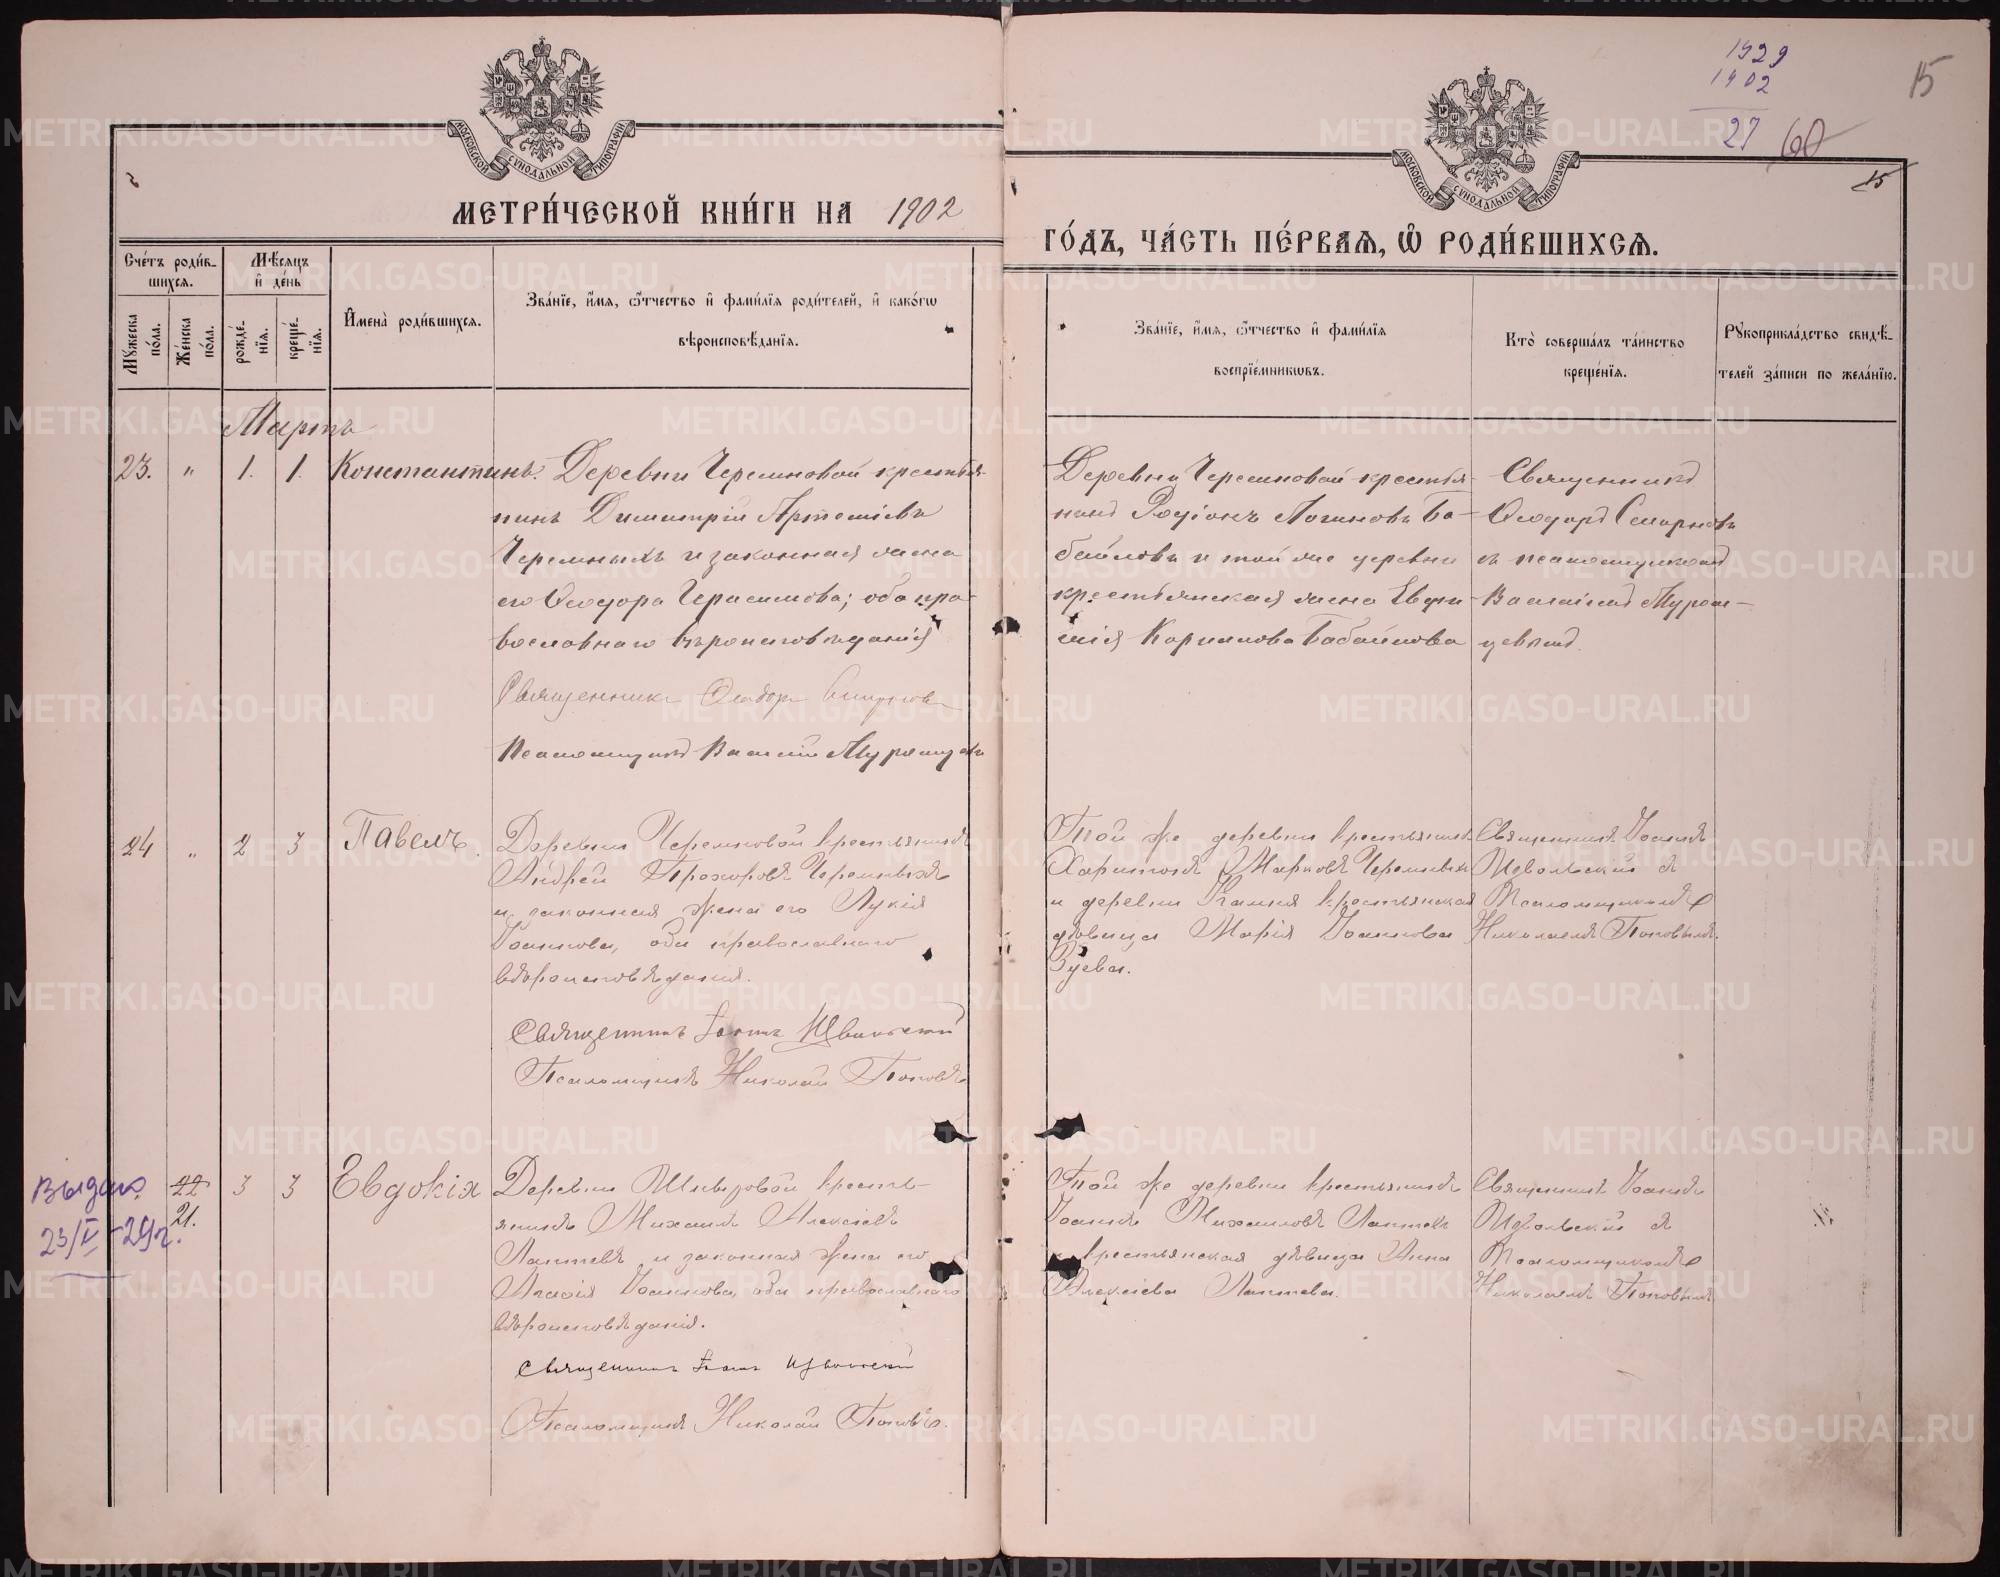 1929
1902
27
60
15
15
МОСКОВСКОЙ СѴНОДАЛЬНОЙ ТИПОГРАФІИ
МОСКОВСКОЙ СѴНОДАЛЬНОЙ ТИПОГРАФІИ
МЕТРИ́ЧЕСКОЙ КНИ́ГИ НА 1902
ГО́ДЪ, ЧА́СТЬ ПЕ́РВАѦ, Ѽ РОДИ́ВШИХСѦ.
Сче́тъ роди́в-
шихсѧ.
Мѣ́сѧцъ
и҆ де́нь
Мꙋ́жеска
по́ла.
Же́нска
по́ла.
рожде́-
нїѧ.
креще́-
нїѧ.
И҆мена̀ роди́вшихсѧ.
Зва́нїе, и҆́мѧ, ѻ҆́тчество и҆ фами́лїѧ роди́телей, и҆ како́гѡ
вѣроисповѣ́данїѧ.
Зва́нїе, и҆́мѧ, ѻ҆́тчество и҆ фами́лїѧ
воспрїе́мникѡвъ.
Кто̀ соверша́лъ та́инство
креще́нїѧ.
Рꙋкоприкла́дство свидѣ́-
телей за́писи по жела́нїю.
Мартъ
23. " 1. 1. Константинъ.
Деревни Черемновой крестья-
нинъ Димитрій Артеміевъ
Черемныхъ и законная жена
его Ѳеодора Герасимова; оба пра-
вославнаго вѣроисповѣданія
Священникъ Ѳеодоръ Смирновъ
Псаломщикъ Василій
Деревни Черемновой крестья-
нинъ Родіонъ Логиновъ Ба-
байловъ и той же деревни
крестьянская жена Евфи-
мія Карпилова Бабайлова
Священникъ
Ѳеодоръ Смирновъ
съ псаломщикомъ
Василіемъ
24 " 2 3 Павелъ.
Деревни Черемновой крестьянинъ
Андрей Прохоровъ Черемныхъ
и законная жена его Лукія
Іоаннова, оба православнаго
вѣроисповѣданія.
Священникъ Іоаннъ Извольскій
Псаломщикъ Николай Поповъ
Той же деревни крестьянинъ
Харитонъ Марковъ Черемныхъ
и деревни крестьянская
дѣвица Марія Іоаннова
Зуева.
Священникъ Іоаннъ
Извольскій съ
Псаломщикомъ
Николаемъ Поповымъ.
Выдано
23/V-29г.
22
21.
3 3 Евдокія
Деревни крестья-
нинъ Михаилъ Алексіевъ
Лаптевъ и законная жена его
Агафія Іоаннова, оба православнаго
вѣроисповѣданія.
Священникъ Іоаннъ Извольскій
Псаломщикъ Николай Поповъ.
Той же деревни крестьянинъ
Іоаннъ Михаиловъ Лаптевъ
и крестьянская дѣвица Анна
Алексіева Лаптева.
Священникъ Іоаннъ
Извольскій съ
Псаломщикомъ
Николаемъ Поповымъ
METRIKI.GASO-URAL.RU